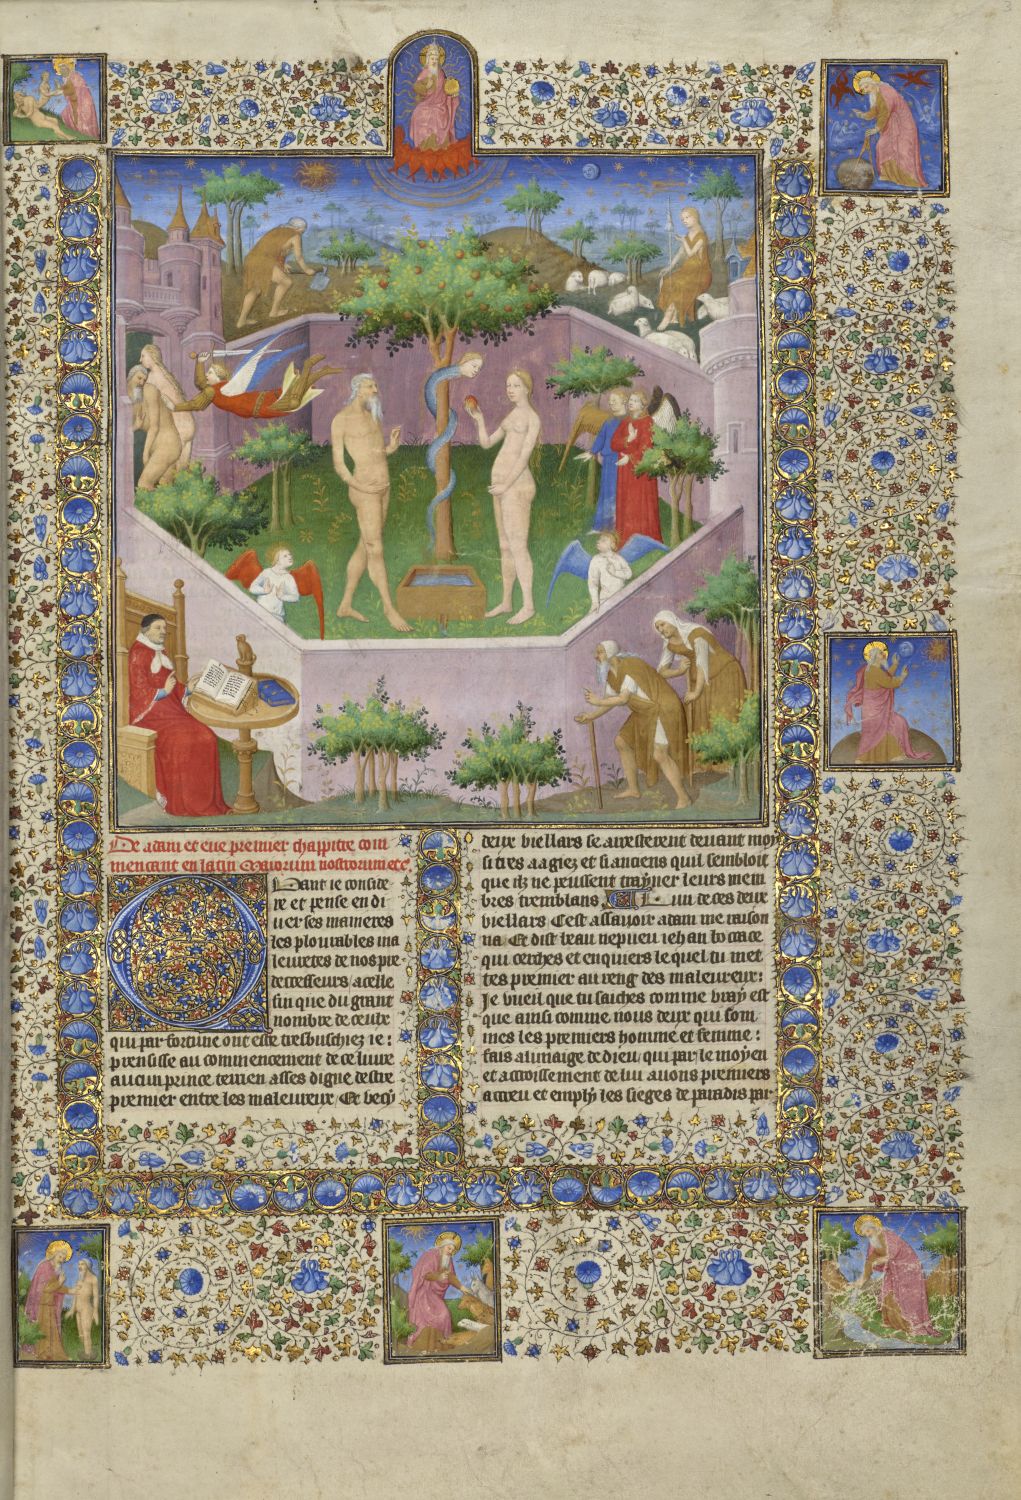 De adam et eue premier chappitre com
mencant en latin Maiorum nostrorum etc
Quant ie conside
re et pense en di
uer ses manieres
les plourables ma
leuretes de nos pre
decesseurs / acelle
fin que du grant
nombre de ceulx
qui par fortune ont este tresbuschiez ie :
prensisse au commencement de ce liure
aucun prince terrien asses digne destre
premier entre les maleureux / Et vecy
deux viellars se arresterent deuant moy
si tres aagiez et si anciens quil sembloit
que ilz ne peussent trayner leurs mem
bres tremblans Lun de ces deux
viellars Cest assauoir adam me raison
na Et dist beau nepueu iehan bocace
qui cerches et enquiers le quel tu met
tes premier au reng des maleureux :
Je vueil que tu saiches comme vray est
que ainsi comme nous deux qui som
mes les premiers homme et femme :
fais a limaige de dieu / qui par le moyen
et accroissement de lui auons premiers
accreu et emply les sieges de paradis par
3